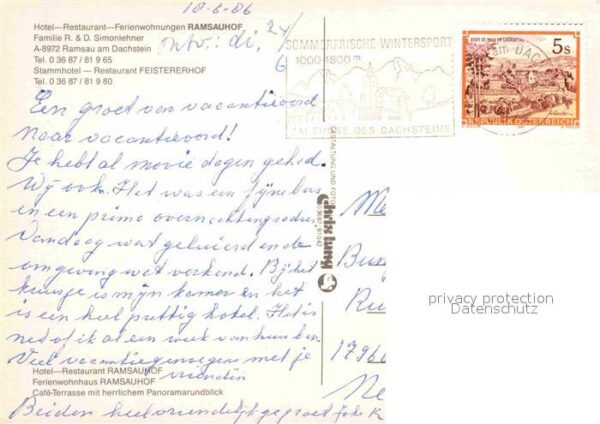 18-6-86
Hotel-Restaurant-Ferienwohnungen RAMSAUHOF
Familie R. & D. Simonlehner
A-8972 Ramsau am Dachstein
Tel. 0 36 87 / 81 9 65
Stammhotel - Restaurant FEISTERERHOF
Tel. 0 36 87 / 81 9 80
di. 24
6
SOMMERFRISCHE-WINTERSPORT
1000-1800 m
AM FUSSE DES DACHSTEINS
am DACH
STIFT ST. PAUL IM LAVANTTAL
5s
REPUBLIK ÖSTERREICH
Een groet van vacantieoord
naar vacantieoord!
Je hebt al mooie dagen gehad.
Wij ook. Het was een fijne bus
en een prima overnachtingsadres
Vandaag wat geluierd en de
omgeving wat verkend. Bij het
kruisje is mijn kamer en het
is een heel prettig hotel. Het is
net of ik al een week van huis ben
Veel vacantiegenoegens met je
vriendin
Hotel-Restaurant RAMSAUHOF
Ferienwohnhaus RAMSAUHOF
Café-Terrasse mit herrlichem Panoramarundblick
Beiden heel vriendelijk gegroet
GESTALTUNG UND FOTO
03687/81042
Me
Bu
Ru
17966
Ne
privacy protection
Datenschutz